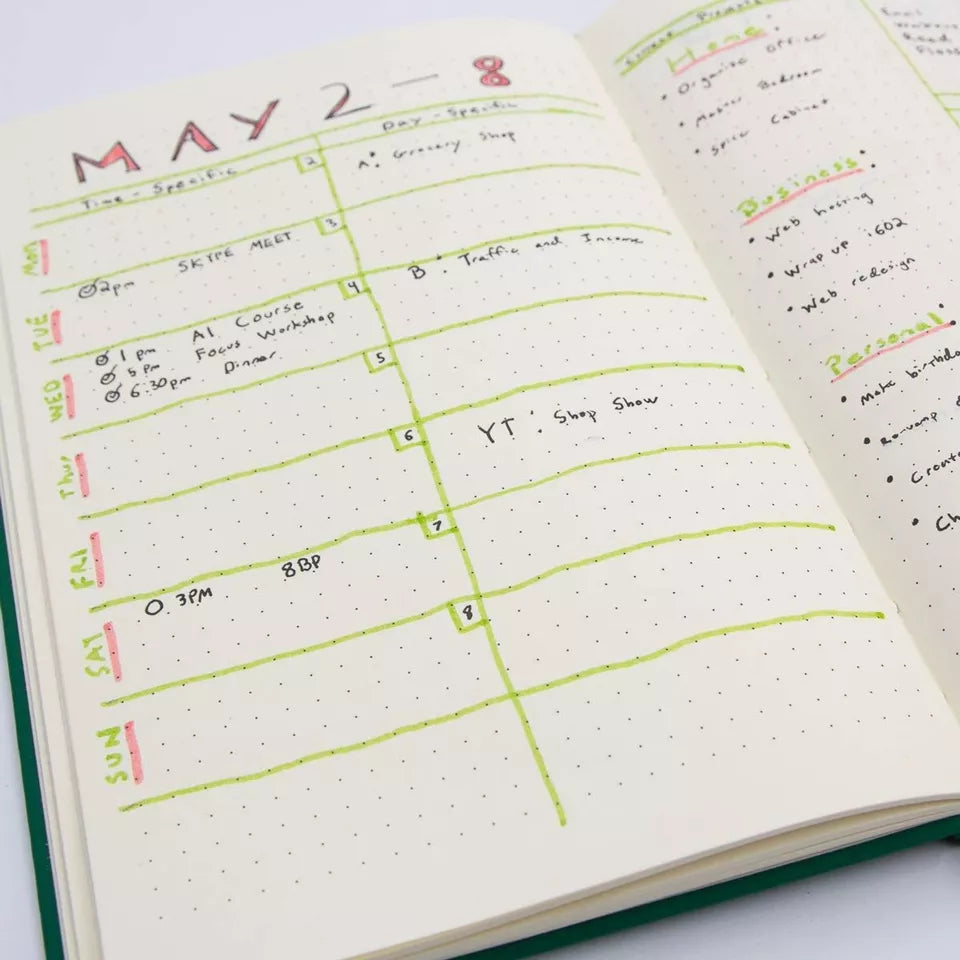 MAY 2 - 8
Time - Specific
Day - Specific
Mon
2
A: Grocery Shop
TUE
3
2pm SKYPE MEET
B: Traffic and Income
WED
4
1 pm AI Course
5 pm Focus Workshop
6:30pm Dinner
Thur
5
FRI
6
YT: Shop Show
SAT
7
O 3PM 8BP
SUN
8
Home:
• Organize Office
• Master Bedroom
• Spice Cabinet
Business:
• Web hosting
• Wrap up i602
• Web redesign
Personal:
• Make
•
•
•
Read